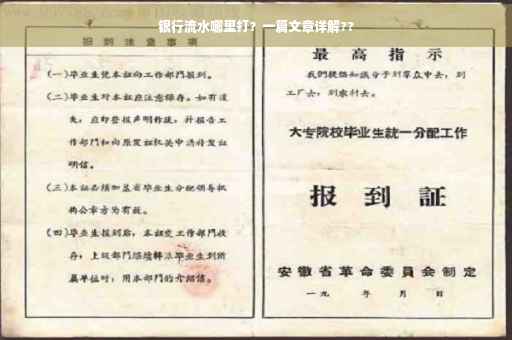 银行流水哪里打？一篇文章详解??
报到注意事项
(一)毕业生凭本证向工作部门报到。
(二)毕业生对本证应注意保存。如有遗
失，应即登报声明作废，并报告工
作部门和向原发证机关申请补发证
明信。
(三)本证必须加盖省毕业生分配领导机
构公章方为有效。
(四)毕业生报到后，本证交工作部门收
存；上级部门继续转派毕业生到所
属单位时，用本部门的介绍信。
最高指示
我们提倡知识分子到群众中去，到
工厂去，到农村去。
大专院校毕业生统一分配工作
报到证
安徽省革命委员会制定
一九 年 月 日